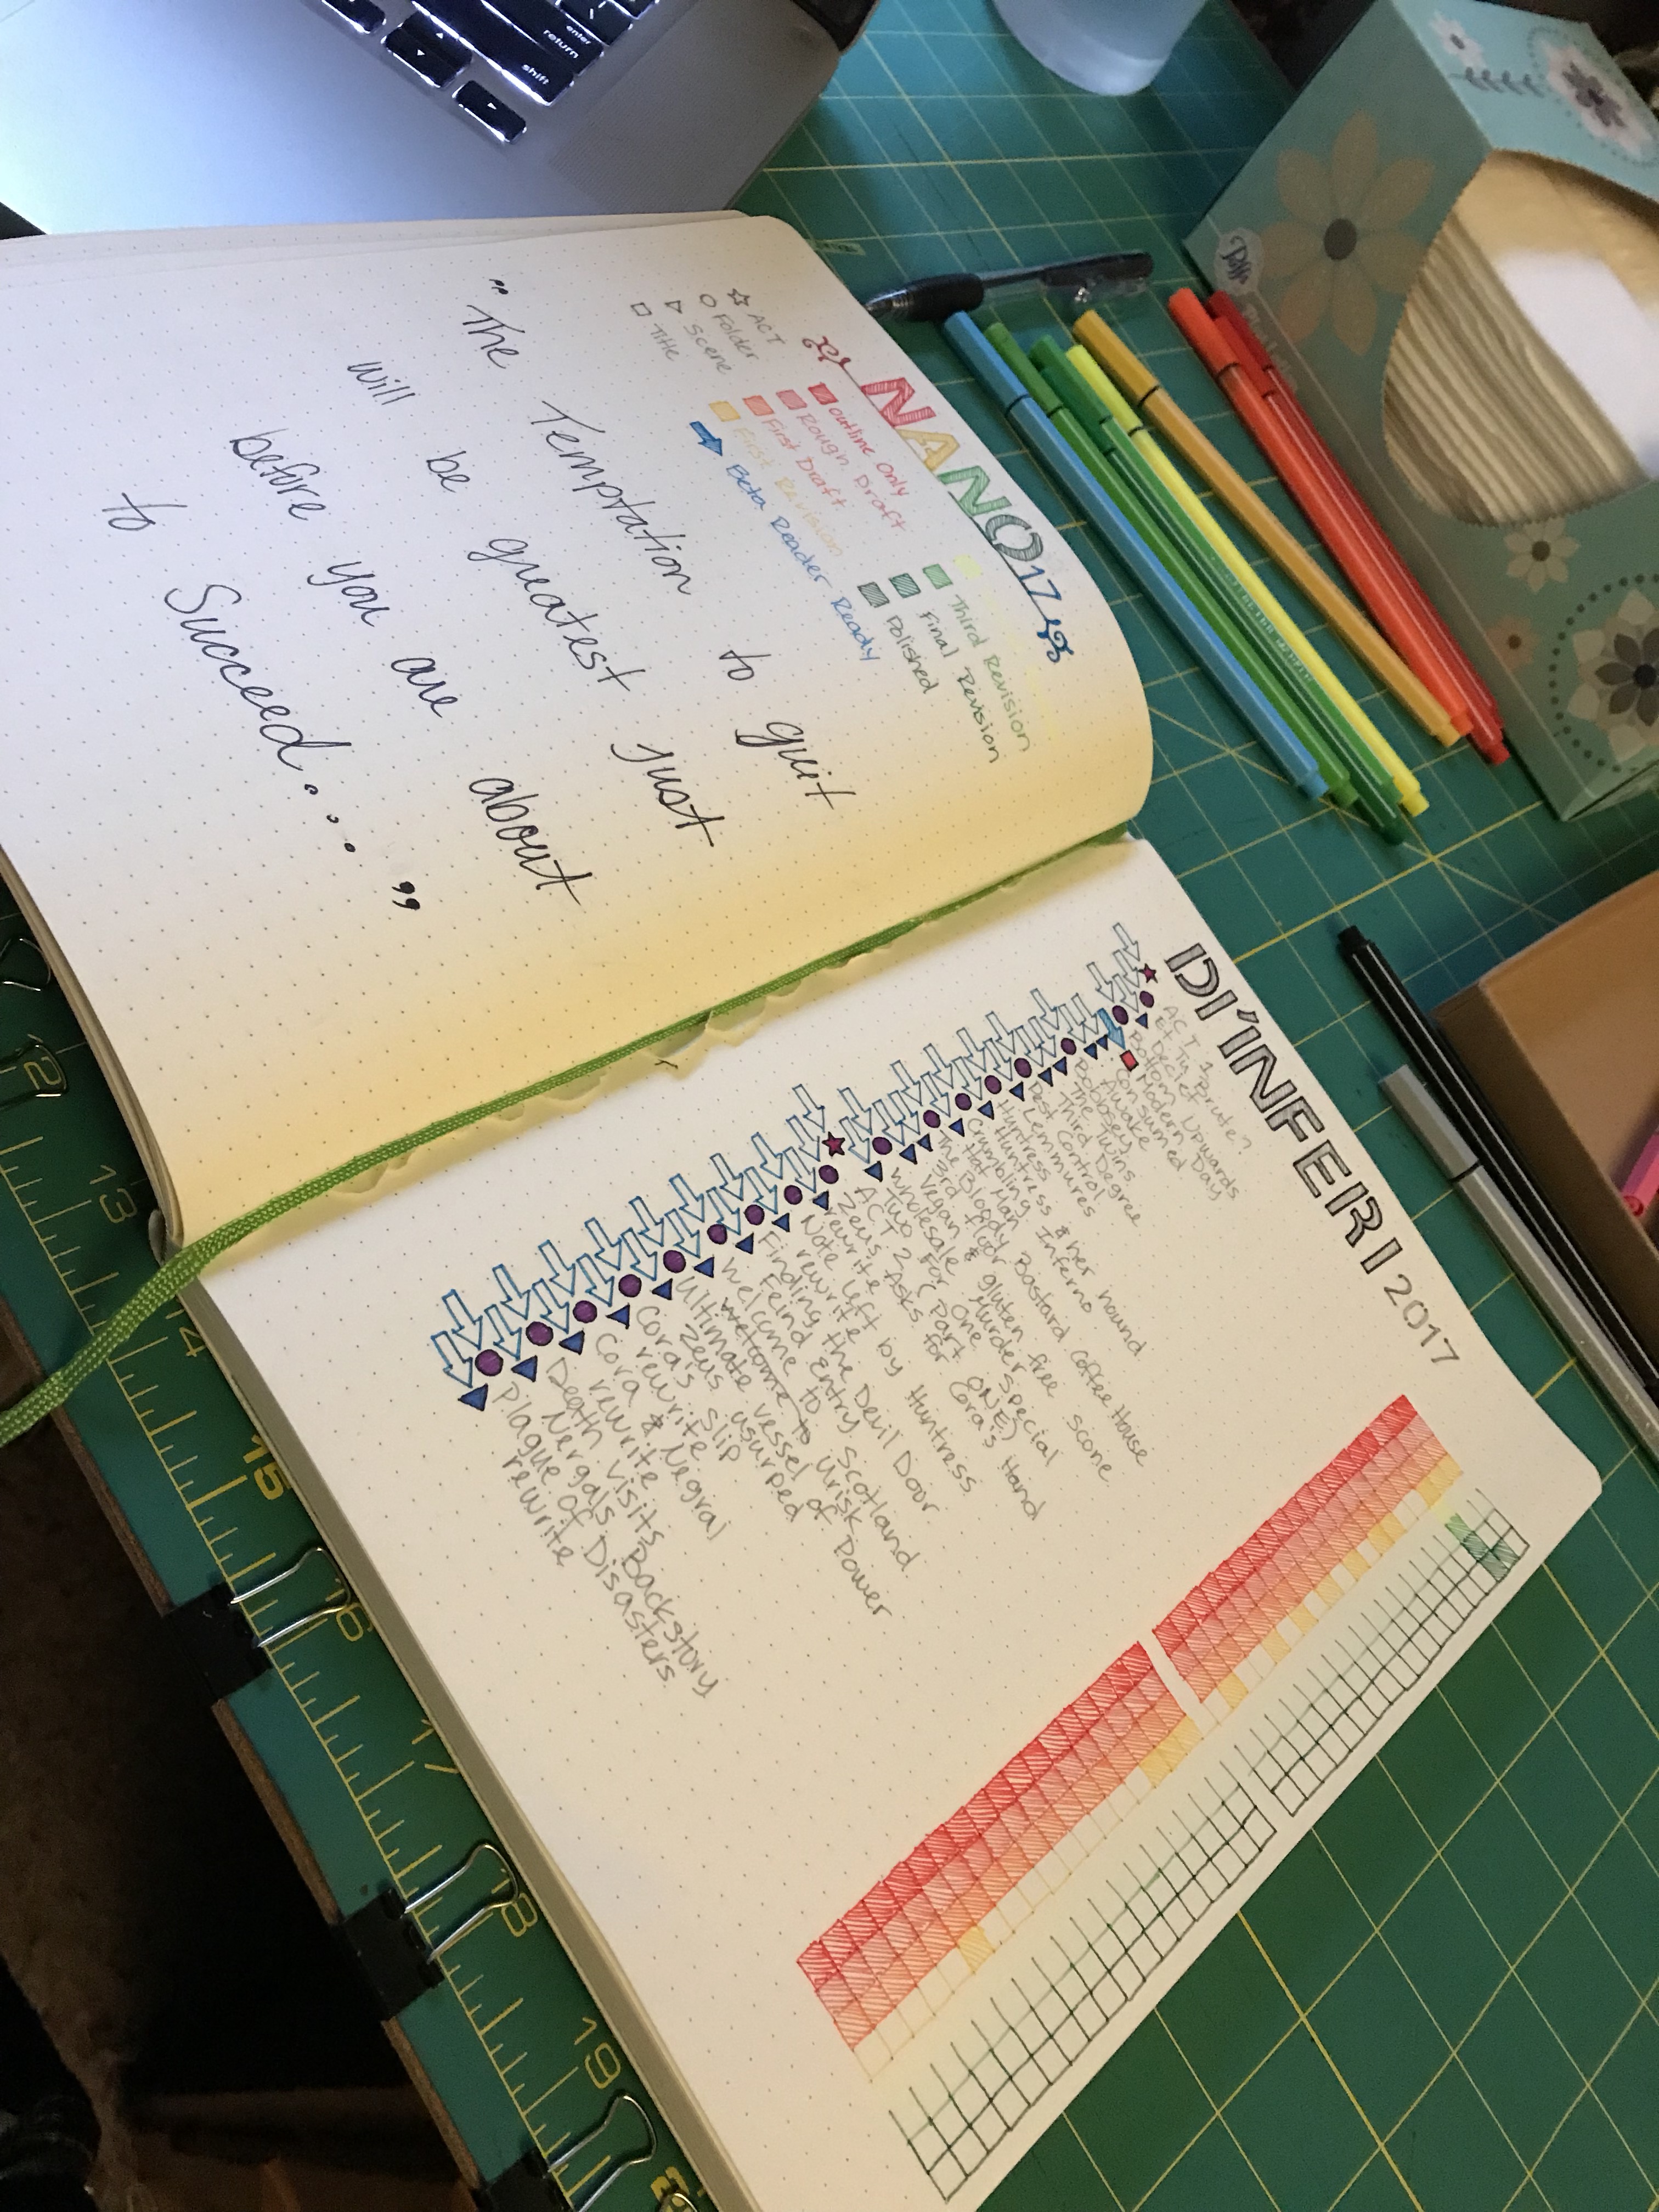 enter
return
shift
NANO17
☆ ACT
○ Folder
▽ Scene
□ Title
Outline Only
Rough Draft
First Draft
First Revision
Beta Reader Ready
Third Revision
Final Revision
Polished
"The Temptation to quit
will be greatest just
before you are about
to Succeed..."
DI'INFERI 2017
ACT 1
Et Tu Brute?
Decief
Bottom Upwards
Modern Day
Consumed
Awake
Bobbsey Twins
The Third Degree
Control
Lemmures
Huntress & her hound
Huntress Inferno
Crumbling
Hat Man
The Bloody Bastard Coffee House
3rd Floor
Vegan & gluten free scone
Wholesale Murder Special
Two For One
ACT 2 (Part ONE)
Zeus Asks for Cora's Hand
rewrite
Note Left by Huntress
rewrite
Finding the Devil Door
Feind Entry
Welcome to Scotland
Welcome to Urisk
Ultimate vessel of Power
Zeus usurped
Cora's Slip
rewrite
Cora & Negral
rewrite
Death Visits
Nergals Backstory
Plague of Disasters
rewrite
Puffs
12
13
14
15
16
17
18
19